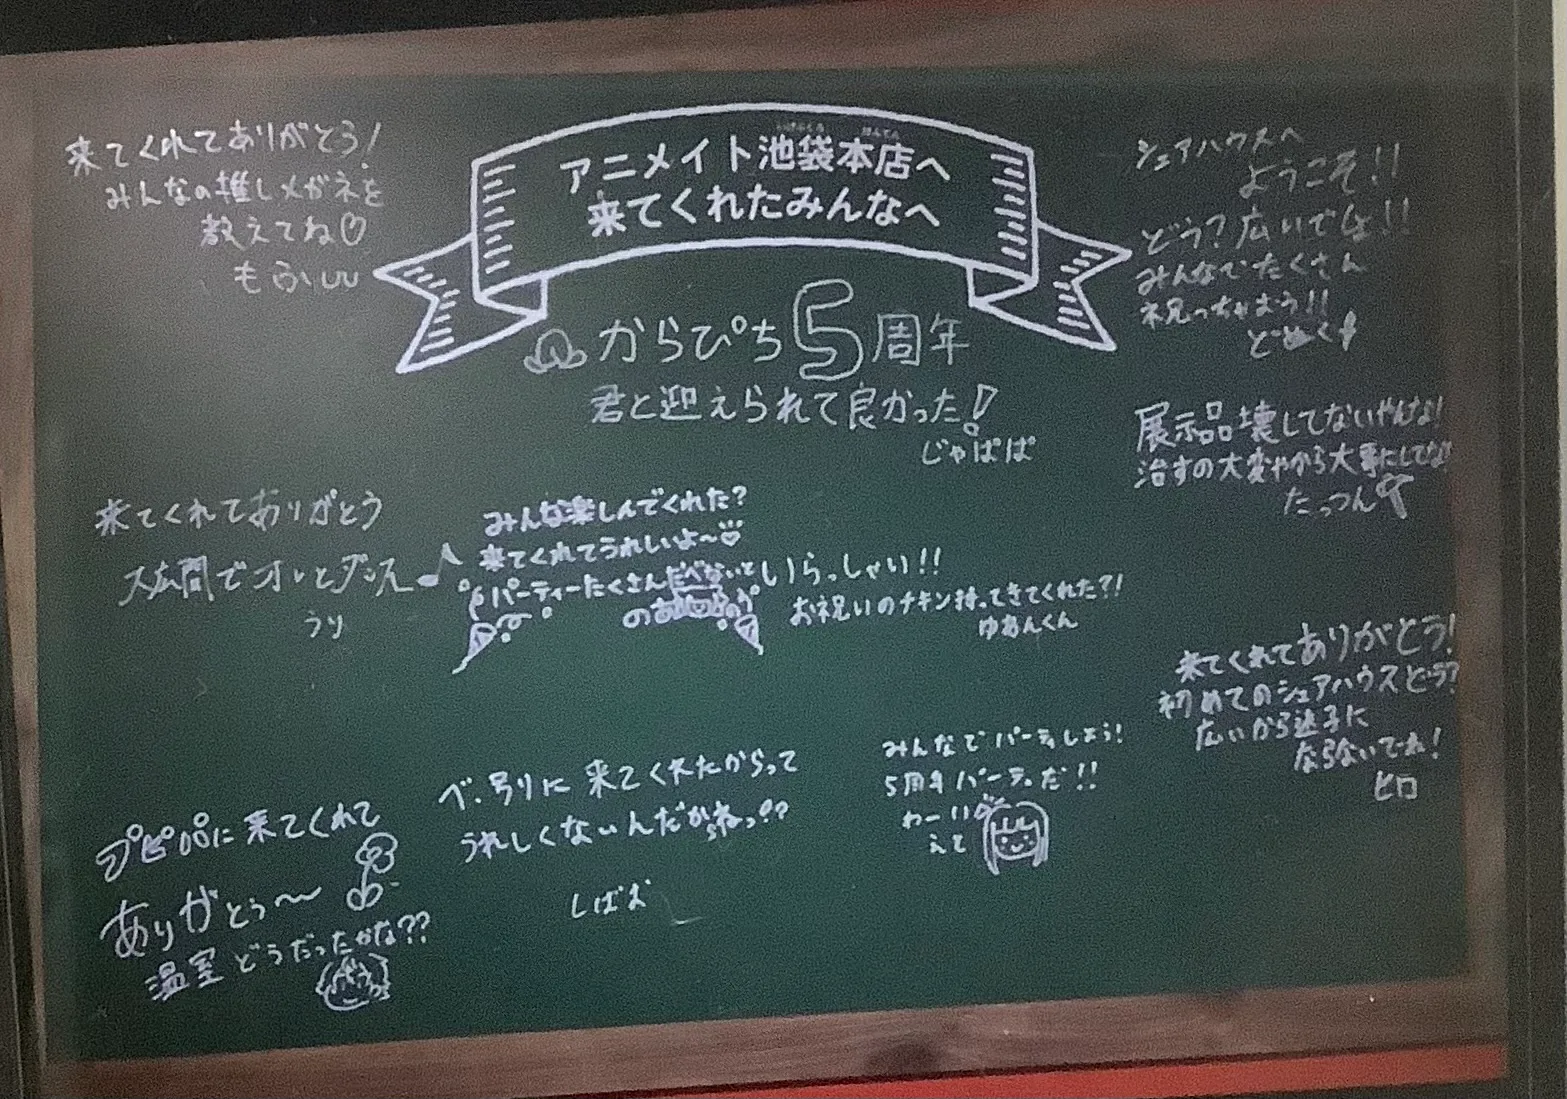 アニメイト池袋本店へ
来てくれたみんなへ
からぴち5周年
君と迎えられて良かった!
じゃぱぱ
来てくれてありがとう!
みんなの推しメガネを
教えてね♡
もふ
シェアハウスへ
ようこそ!!
どう?広いでしょ!!
みんなでたくさん
祝っちゃおう!!
どぬく
展示品壊してないやんな!
治すの大変やから大事にしてな
たっつん
来てくれてありがとう
大広間でオレとダンス♪
うり
みんな楽しんでくれた?
来てくれてうれしいよ〜♡
パーティーたくさん
のあ
いらっしゃい!!
お祝いのチキン持ってきてくれた?!
ゆあんくん
来てくれてありがとう!
初めてのシェアハウスどう?
広いから迷子に
ならないでね!
ヒロ
みんなでパーティしよう!
5周年パーティだ!!
わーい
えと
べ、別に来てくれたからって
うれしくないんだからねっ??
しばお
プピパに来てくれて
ありがとう〜
温室どうだったかな??